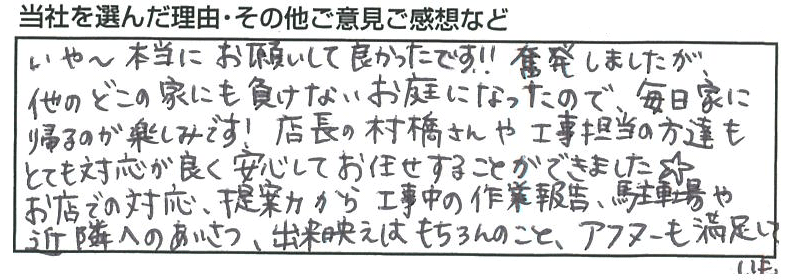 当社を選んだ理由・その他ご意見ご感想など
いや～ 本当に お願いして 良かったです!! 奮発しましたが、
他の どこの 家にも 負けない お庭に なったので、毎日家に
帰るのが 楽しみです! 店長の 村橋さんや 工事担当の方達も
とても対応が良く 安心して お任せすることが できました☆
お店での対応、提案力から 工事中の作業報告、駐車場や
近隣へのあいさつ、出来映えは もちろんのこと、アフターも満足して
います。